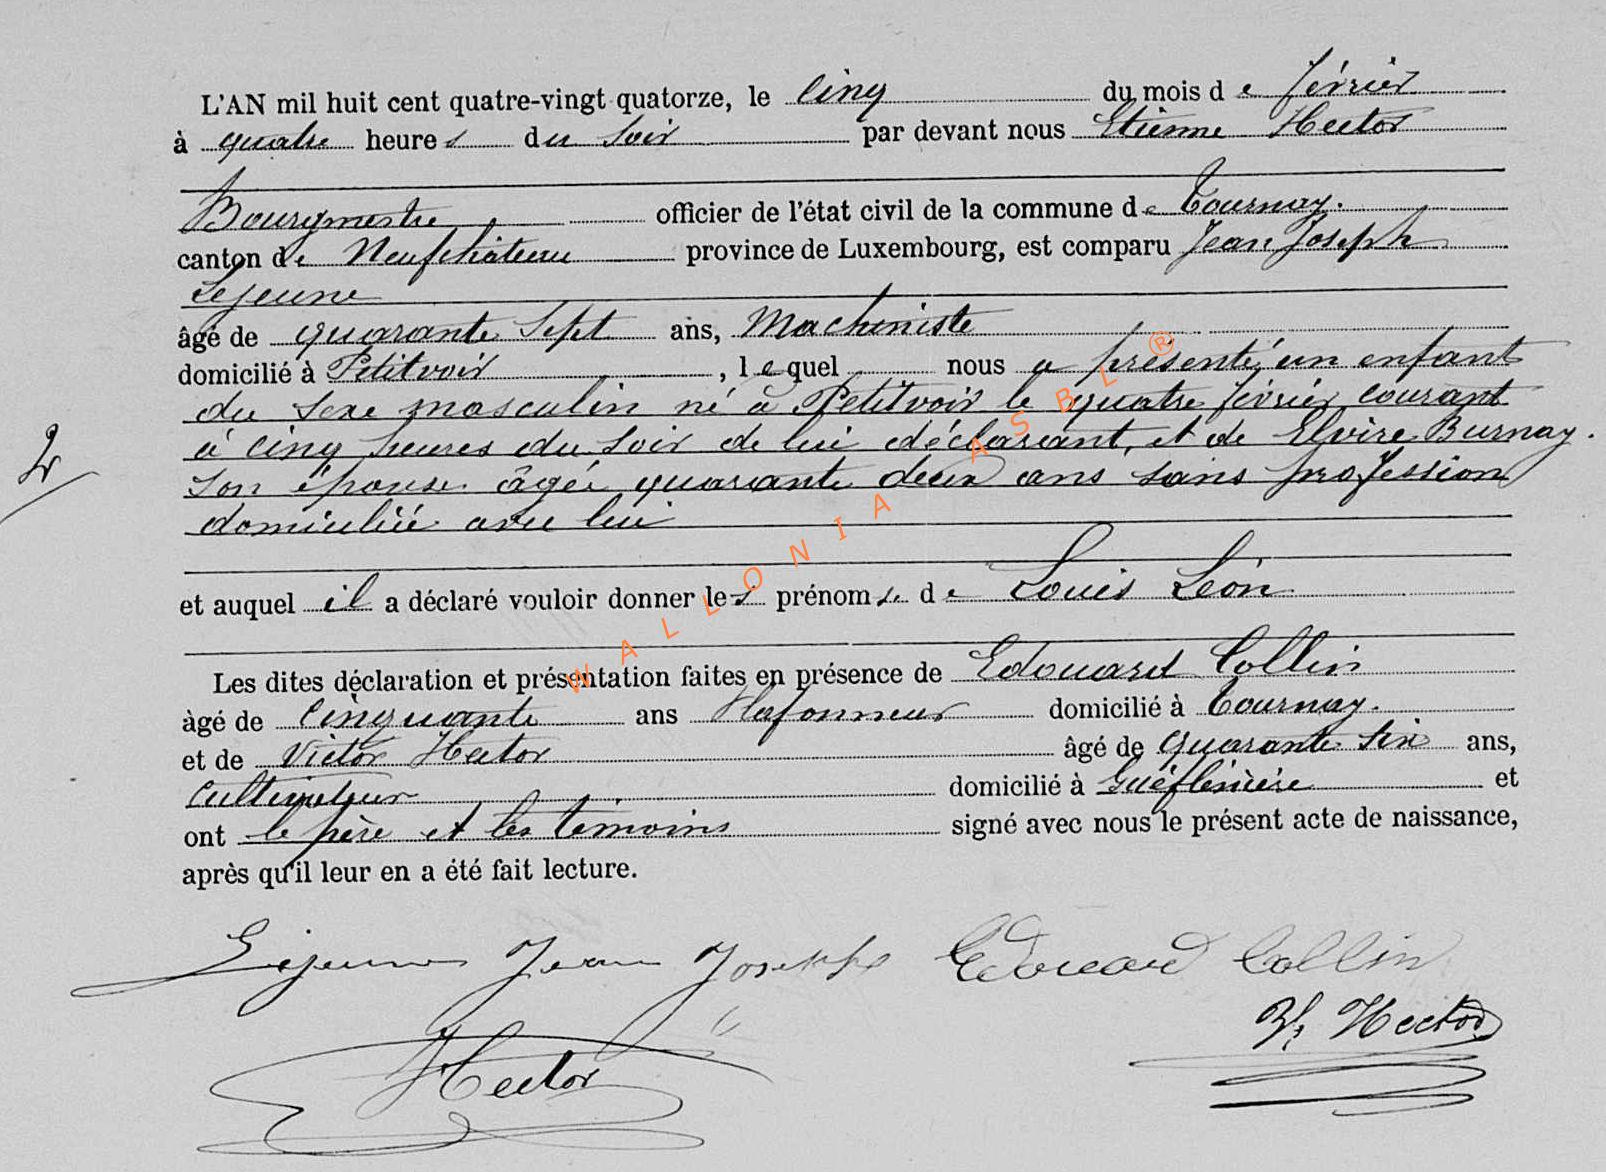 L'AN mil huit cent quatre-vingt quatorze, le cinq du mois de février
à quatre heures du soir par devant nous Etienne Hector
Bourgmestre officier de l'état civil de la commune de Tournay.
canton de Neufchâteau province de Luxembourg, est comparu Jean Joseph
Lejeune
âgé de quarante sept ans, Machiniste
domicilié à Petitvoir, lequel nous a présenté un enfant
du sexe masculin né à Petitvoir le quatre février courant
à cinq heures du soir de lui déclarant, et de Elvire Burnay.
son épouse âgée quarante deux ans sans profession
domiciliée avec lui
2
et auquel il a déclaré vouloir donner les prénoms de Louis Léon
Les dites déclaration et présentation faites en présence de Edouard Collin
âgé de cinquante ans domicilié à Tournay.
et de Victor Hector âgé de quarante six ans,
cultivateur domicilié à et
ont le père et les témoins signé avec nous le présent acte de naissance,
après qu'il leur en a été fait lecture.
Lejeune Jean Joseph Edouard Collin
Hector
V. Hector
WALLONIA ASBL ®